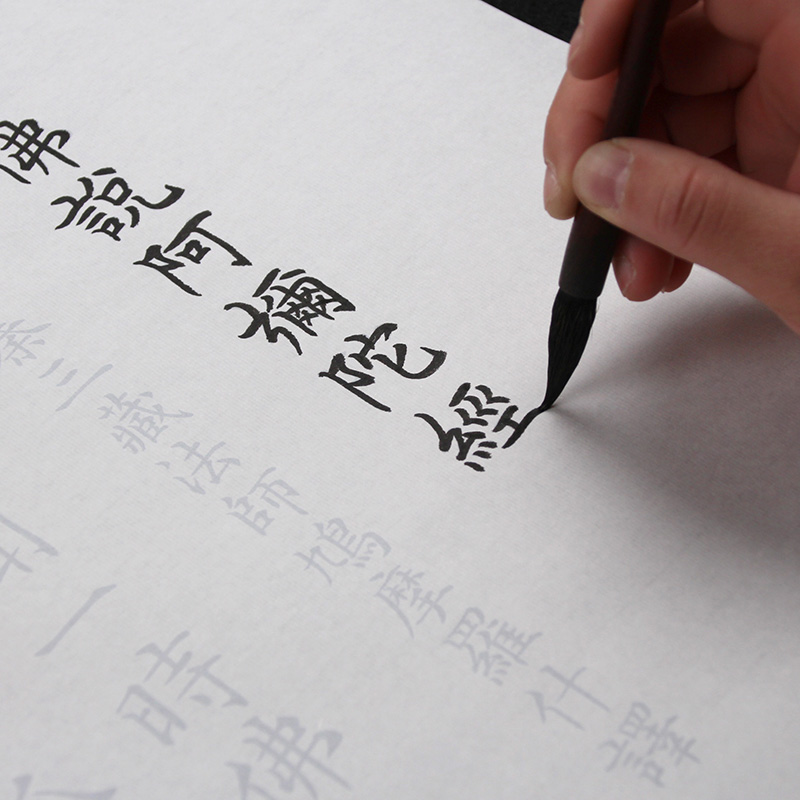 佛說阿彌陀經
秦三藏法師鳩摩羅什譯
一時佛